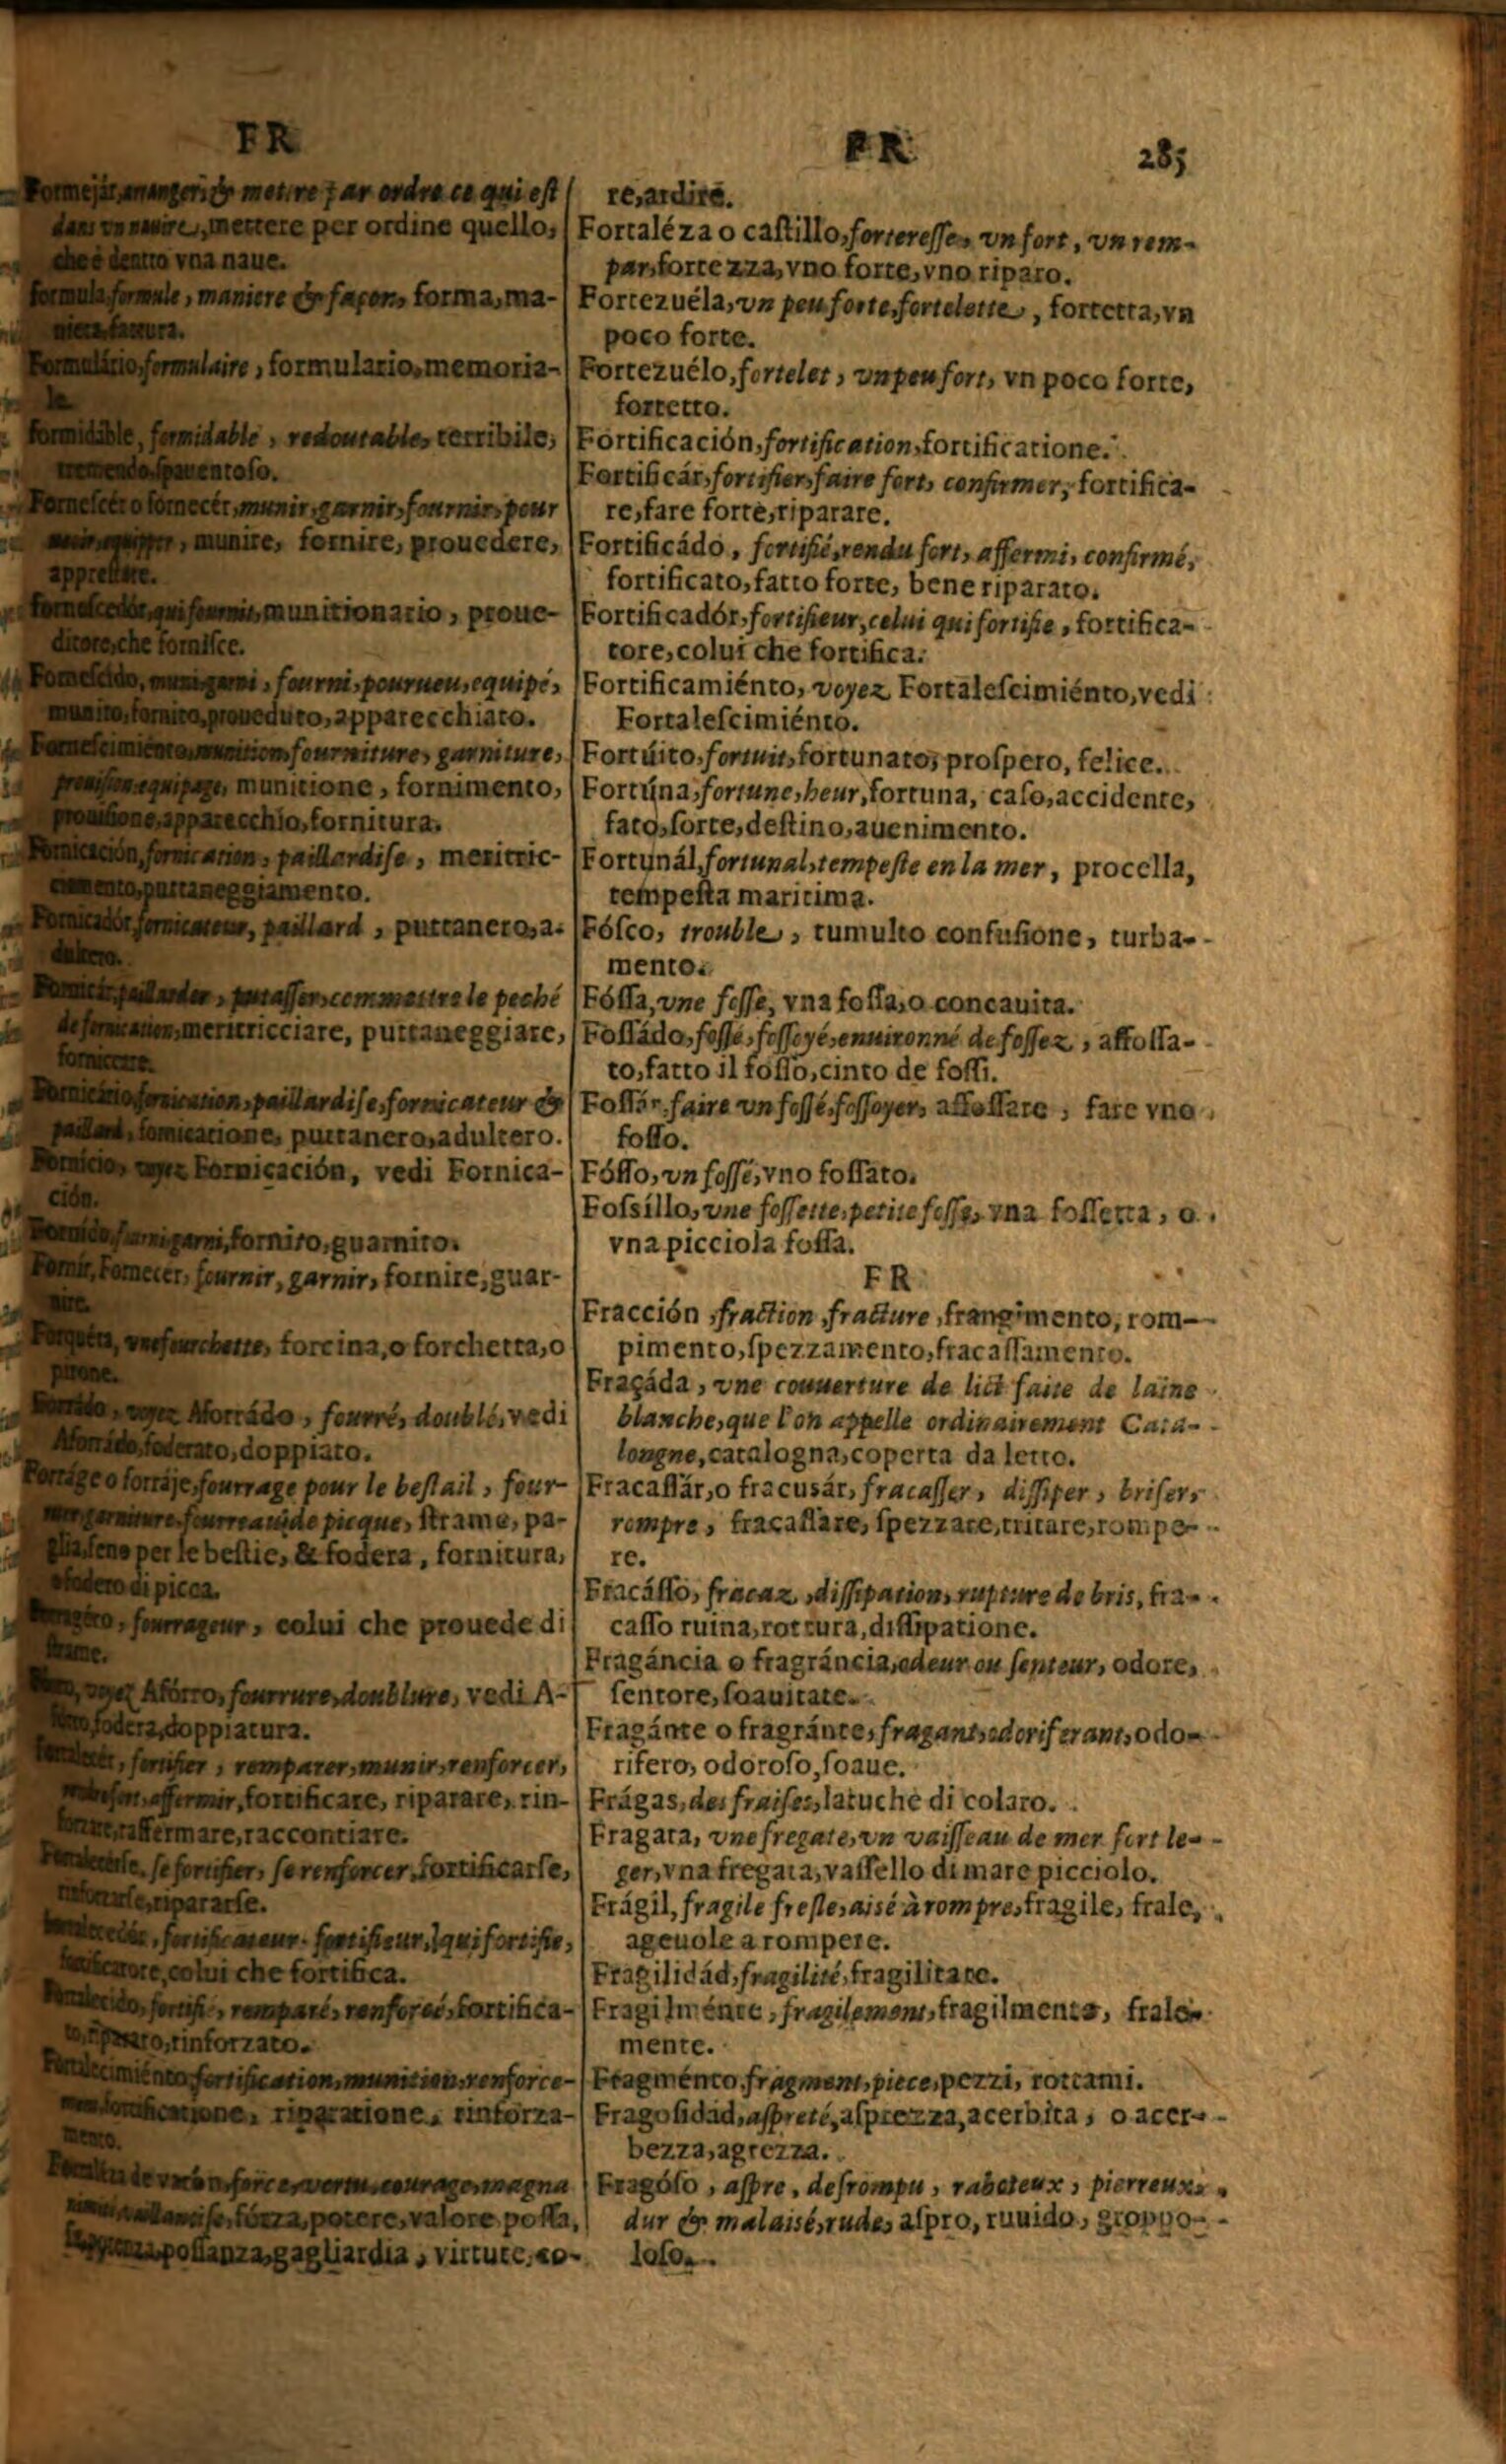 FR
Formejár, arranger, & mettre par ordre ce qui est
dans vn nauire, mettere per ordine quello,
che è dentro vna naue.
Formula, formule, maniere & façon, forma, ma-
niera, fattura.
Formulário, formulaire, formulario, memoria-
le.
Formidáble, formidable, redoutable, terribile,
tremendo, spauentoso.
Fornescér o fornecér, munir, garnir, fournir, pour
munire, fornire, prouedere,
apprestare.
Fornescedór, qui fournit, munitionario, proue-
ditore, che fornisce.
Fornescido, muni, garni, fourni, pourueu, equipé,
munito, fornito, proueduto, apparecchiato.
Fornescimiénto, munition, fourniture, garniture,
prouision, equipage, munitione, fornimento,
prouisione, apparecchio, fornitura.
Fornicación, fornication, paillardise, meritric-
ciamento, puttaneggiamento.
Fornicadór, fornicateur, paillard, puttanero, a-
dultero.
Fornicár, paillarder, putasser, commettre le peché
de fornication, meritricciare, puttaneggiare,
fornicare.
Fornicário, fornication, paillardise, fornicateur &
paillard, fornicatione, puttanero, adultero.
Fornicio, voyez Fornicación, vedi Fornica-
ción.
Fornido, fourni, garni, fornito, guarnito.
Fornir, Fornecer, fournir, garnir, fornire, guar-
nire.
Forquéta, vne fourchette, forcina, o forchetta, o
pirone.
Forrádo, voyez Aforrádo, fourré, doublé, vedi
Aforrádo, foderato, doppiato.
Forráge o forráje, fourrage pour le bestail, four-
garniture, fourreau de picque, strame, pa-
glia, feno per le bestie, & fodera, fornitura,
o fodero di picca.
fourrageur, colui che prouede di
strame.
voyez Afórro, fourrure, doublure, vedi A-
fodera, doppiatura.
fortifier, remparer, munir, renforcer,
affermir, fortificare, riparare, rin-
raffermare, raccontiare.
se fortifier, se renforcer, fortificarse,
ripararse.
fortificateur, fortifieur, qui fortifie,
colui che fortifica.
fortifié, remparé, renforcé, fortifica-
to, riparato, rinforzato.
fortification, munition, renforce-
fortificatione, riparatione, rinforza-
mento.
de varón, force, vertu, courage, magna
fórza, potere, valore, possa,
possanza, gagliardia, virtute, co-
FR 285
re, ardire.
Fortaléza o castillo, forteresse, vn fort, vn rem-
par, fortezza, vno forte, vno riparo.
Fortezuéla, vn peu forte, fortelette, fortetta, vn
poco forte.
Fortezuélo, fortelet, vn peu fort, vn poco forte,
fortetto.
Fortificación, fortification, fortificatione.
Fortificár, fortifier, faire fort, confirmer, fortifica-
re, fare forte, riparare.
Fortificádo, fortifié, rendu fort, affermi, confirmé,
fortificato, fatto forte, bene riparato.
Fortificadór, fortifieur, celui qui fortifie, fortifica-
tore, colui che fortifica.
Fortificamiénto, voyez Fortalescimiénto, vedi
Fortalescimiénto.
Fortúito, fortuit, fortunato, prospero, felice.
Fortúna, fortune, heur, fortuna, caso, accidente,
fato, sorte, destino, auenimento.
Fortunál, fortunal, tempeste en la mer, procella,
tempesta maritima.
Fósco, trouble, tumulto confusione, turba-
mento.
Fóssa, vne fosse, vna fossa, o concauita.
Fossádo, fossé, fossoyé, enuironné de fossez, affossa-
to, fatto il fosso, cinto de fossi.
Fossár, faire vn fossé, fossoyer, affossare, fare vno
fosso.
Fósso, vn fossé, vno fossato.
Fossíllo, vne fossette, petite fosse, vna fossetta, o
vna picciola fossa.
FR
Fracción, fraction, fracture, frangimento, rom-
pimento, spezzamento, fracassamento.
Fraçáda, vne couuerture de lict faite de laine
blanche, que l'on appelle ordinairement Cata-
longne, catalogna, coperta da letto.
Fracassár, o fracusár, fracasser, dissiper, briser,
rompre, fracassare, spezzare, tritare, rompe-
re.
Fracásso, fracaz, dissipation, rupture de bris, fra-
casso ruina, rottura, dissipatione.
Fragáncia o fragráncia, odeur ou senteur, odore,
sentore, soauitate.
Fragánte o fragránte, fragant, odoriferant, odo-
rifero, odoroso, soaue.
Frágas, des fraises, latuche di colaro.
Fragata, vne fregate, vn vaisseau de mer fort le-
ger, vna fregata, vassello di mare picciolo.
Frágil, fragile fresle, aisé à rompre, fragile, frale,
ageuole a rompere.
Fragilidád, fragilité, fragilitate.
Fragilménte, fragilement, fragilmente, frale-
mente.
Fragménto, fragment, piece, pezzi, rottami.
Fragosidád, aspreté, asprezza, acerbita, o acer-
bezza, agrezza.
Fragóso, aspre, desrompu, raboteux, pierreux,
dur & malaisé, rude, aspro, ruuido, groppo-
loso.